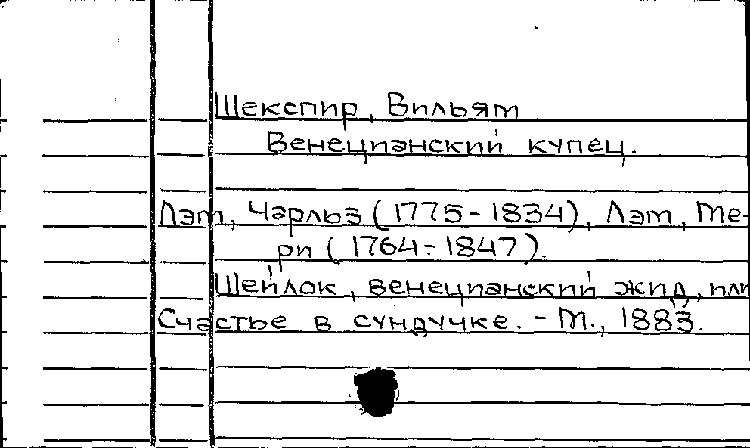 Шекспир, Вильям
Венецианский купец.
Лэм, Чарльз (1775-1834), Лэм, Ме-
ри (1764-1847).
Шейлок, венецианский жид, или
Счастье в сундучке. - М., 1883.